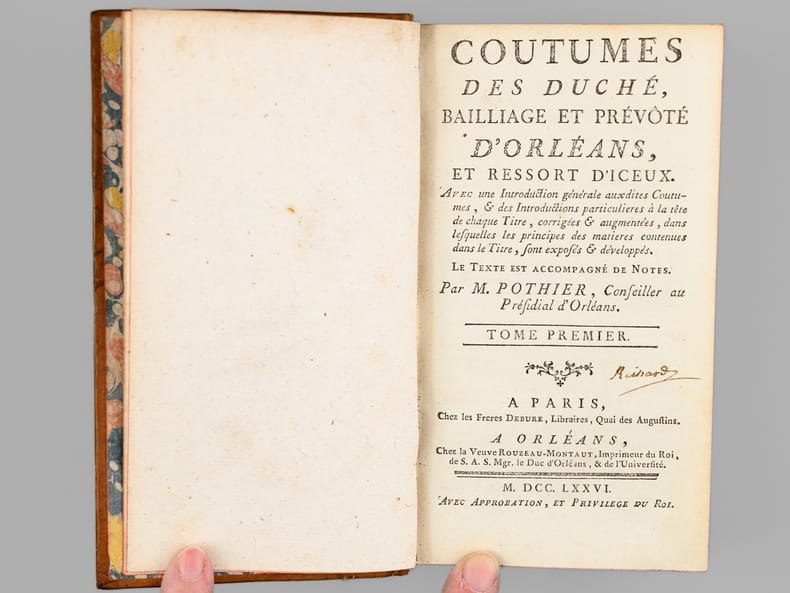 COUTUMES
DES DUCHÉ,
BAILLIAGE ET PRÉVÔTÉ
D'ORLÉANS,
ET RESSORT D'ICEUX.
AVEC une Introduction générale auxdites Coutu-
mes, & des Introductions particulieres à la tête
de chaque Titre, corrigées & augmentées, dans
lesquelles les principes des matieres contenues
dans le Titre, sont exposés & développés.
LE TEXTE EST ACCOMPAGNÉ DE NOTES.
Par M. POTHIER, Conseiller au
Présidial d'Orléans.
TOME PREMIER.
A PARIS,
Chez les Freres DEBURE, Libraires, Quai des Augustins.
A ORLÉANS,
Chez la Veuve ROUZEAU-MONTAUT, Imprimeur du Roi,
de S. A. S. Mgr. le Duc d'Orléans, & de l'Université.
M. DCC. LXXVI.
AVEC APPROBATION, ET PRIVILEGE DU ROI.